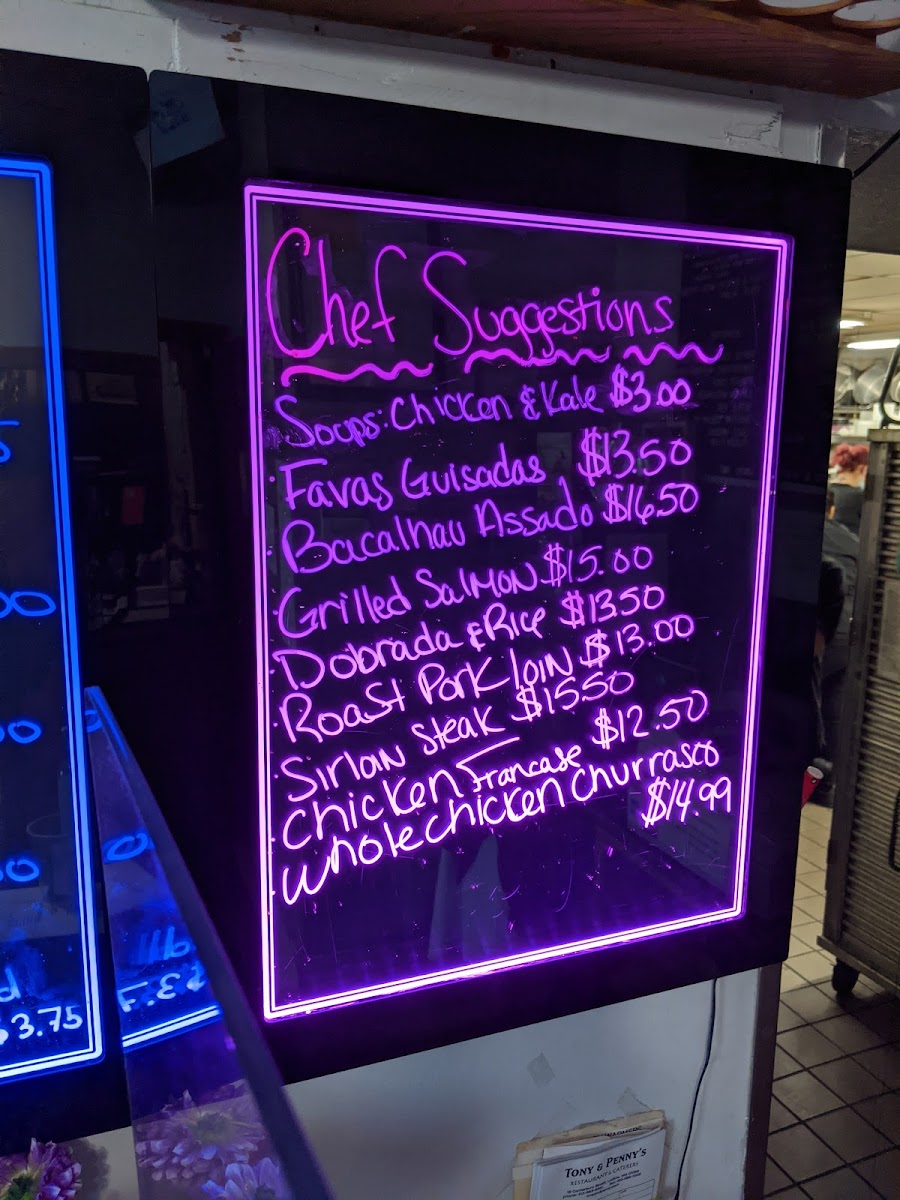 Chef Suggestions
Soups: Chicken & Kale $3.00
Favas Guisadas $13.50
Bacalhau Assado $16.50
Grilled Salmon $15.00
Dobrada & Rice $13.50
Roast Pork loin $13.00
Sirlan steak $15.50
Chicken Francase $12.50
whole chicken Churrasco
$14.99
$3.75
TONY & PENNY'S
RESTAURANT & CATERERS